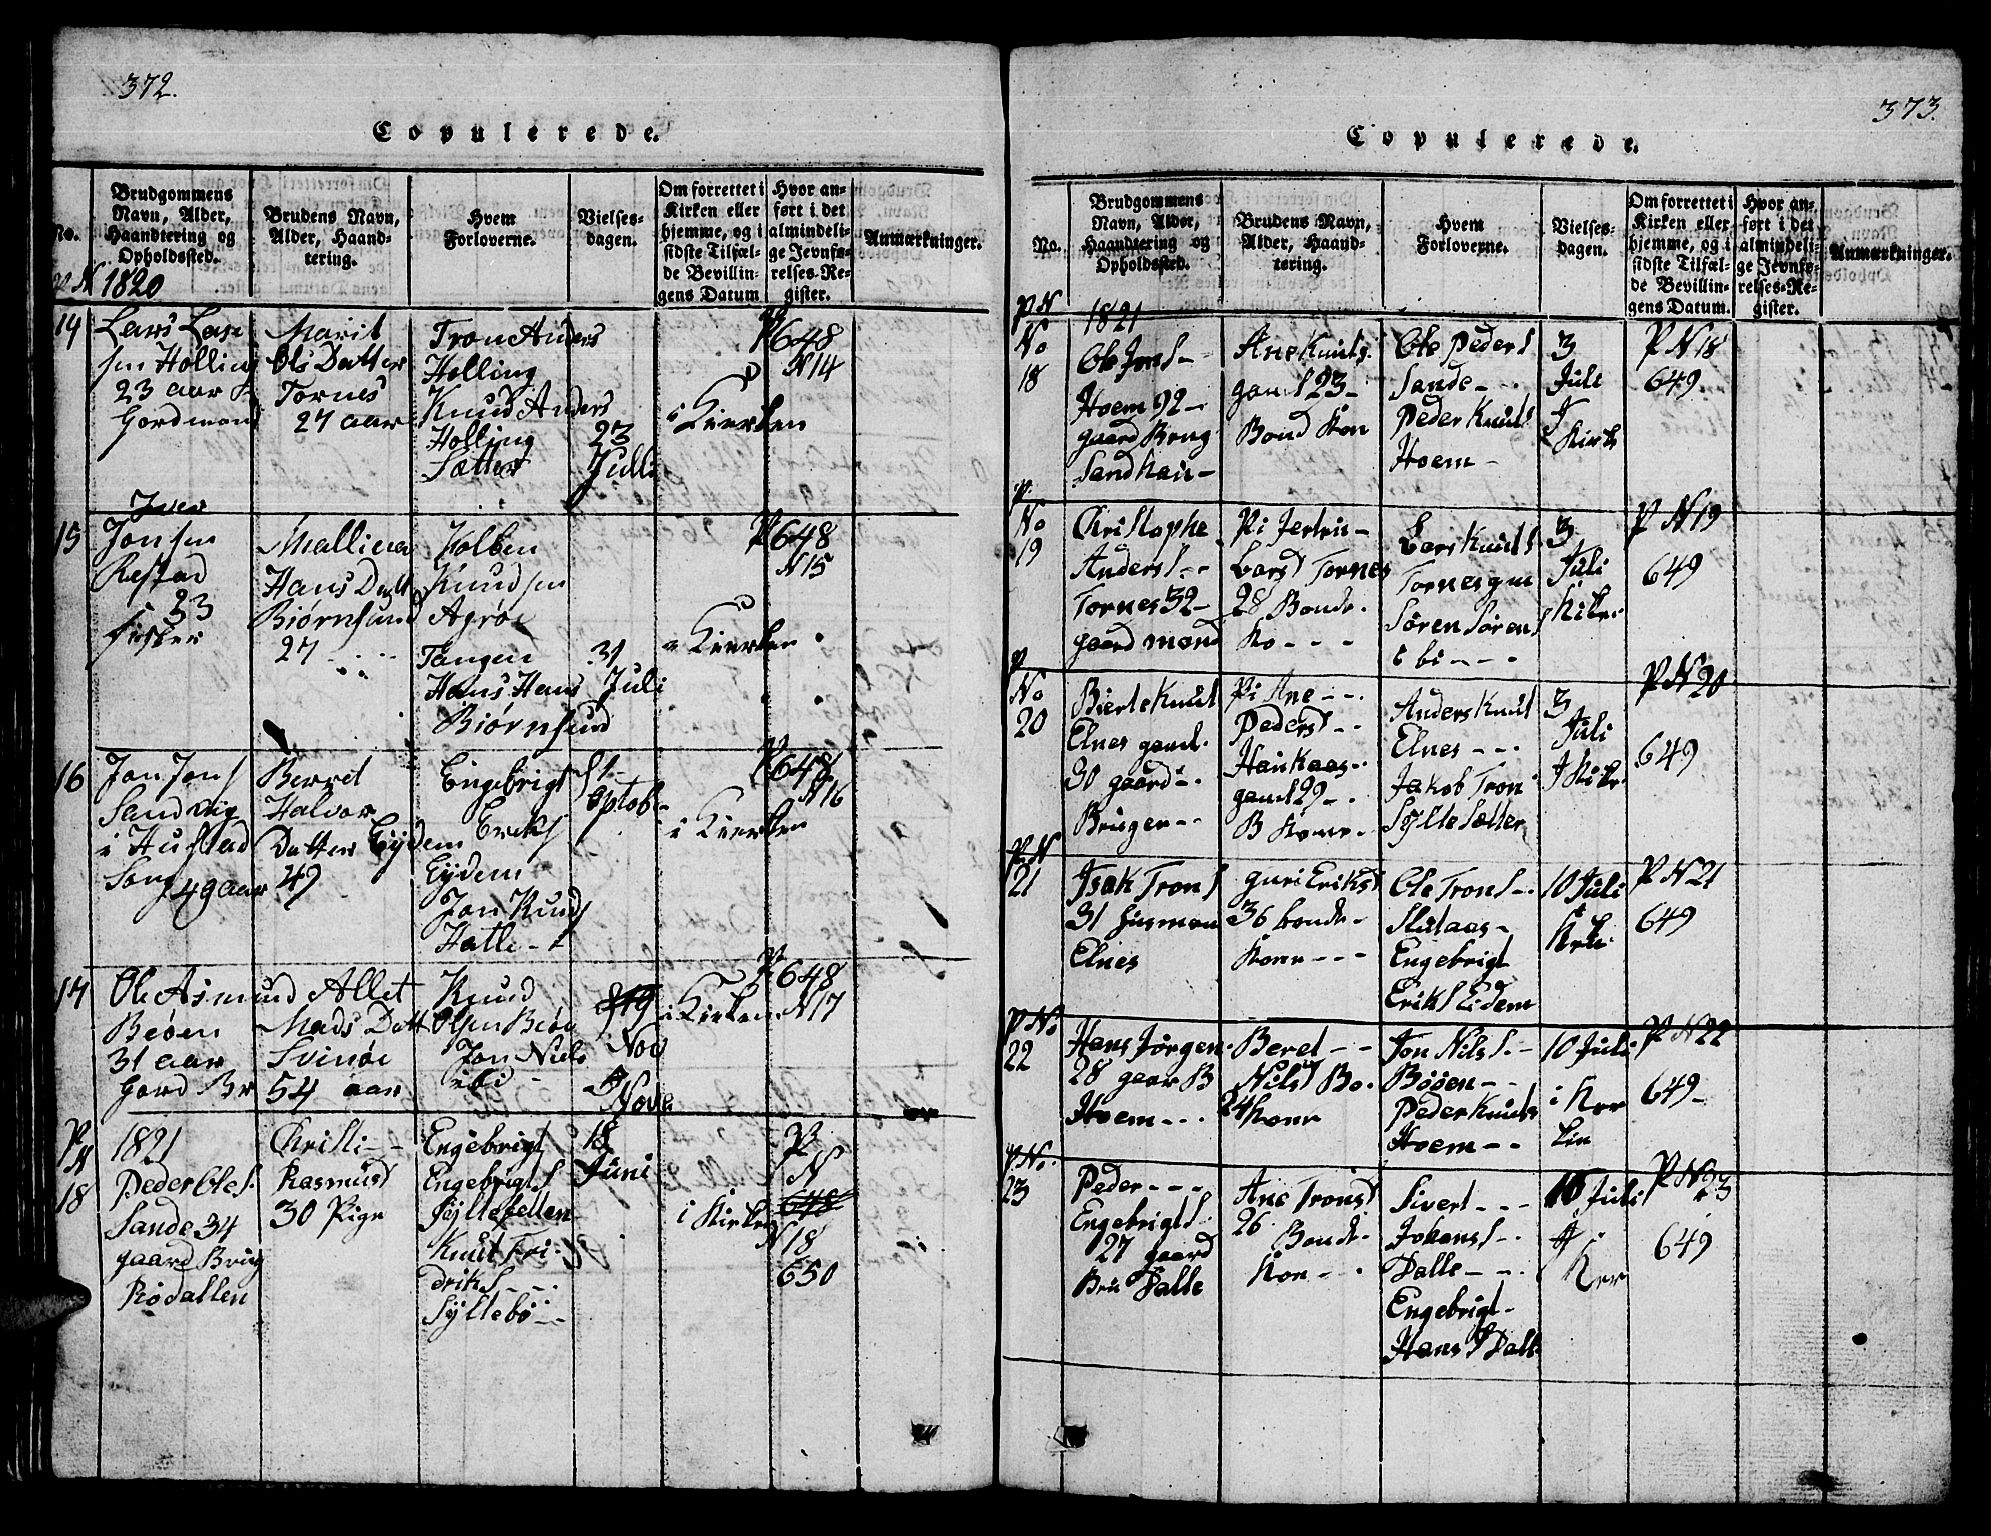 372.
Copulerede.
No.
Brudgommens
Navn, Alder,
Haandtering og
Opholdssted.
Brudens Navn,
Alder, Haand-
tering.
Hvem
Forloverne.
Vielses-
dagen.
Om forrettet i
Kirken eller
hjemme, og i
sidste Tilfæl-
de Bevillin-
gens Datum
Hvor an-
ført i det
almindeli-
ge Jevnfø-
relses-Re-
gister.
Anmærkninger.
1820
14
Lars Lar
sen Holling
23 aar
Gordmand
Marit
Ols Datter
Tornes
27 aar
Tron Anders
Holling
Knud Anders
Holling
Sætter
23
Julli
i Kierken
P 648
N 14
15
Iver
Jonsen
Restad
33
fisker
Malliena
Hans Datt
Biørnsund
27
Kolben
Knudsen
Agrøe
Tangen
Hans Hans
Biørnsund
31
Juli
i Kierken
P 648
N 15
16
Jon Jons
Sandvig
i Hustad
Song 49 aar
Berret
Halvor
Datter Eydem
49
Engebrigt
Eriks
Eydem
Jon Knuds
Hatle
1
Optobe
i Kierken
P 648
N 16
17
Ole Asmund
Beøen
31 aar
Gord Br
Allet
Mads Datt
Svinøe
54 aar
Knud
Olsen Beøe
Jon Niels
ibi
19
Nov
Nove
i Kirken
P 648
N 17
P
N
18
1821
Peder Oles.
Sande 34
gaard Brug
Rødallen
Christi
Rasmusd
30 Pige
Engebrigt
Engebrigts
Syltesetten
Knut Fri
driks
Syltebø
18
Juni
i Kirken
P
N
648
N 18
650
373.
Copulerede.
No.
Brudgommens
Navn, Alder,
Haandtering og
Opholdssted.
Brudens Navn,
Alder, Haand-
tering.
Hvem
Forloverne.
Vielses-
dagen.
Om forrettet i
Kirken eller
hjemme, og i
sidste Tilfæl-
de Bevillin-
gens Datum.
Hvor an-
ført i det
almindeli-
ge Jevnfø-
relses-Re-
gister.
Anmærkninger.
P N
1821
No
18
Ole Jons
Hoem 92
gaard Brug
Sandhau
Ane Knuts
gaml 23
Bond Kon
Ole Peders
Sande
Peder Knuts
Hoem
3
Juli
I
Kirk
P N 18
649
P.
No
19
Christophe
Anders
Tornes 32
gaard mand
Pi Jertru
Larsd Tornes
28 Bonde
Ko
Lars Knuts
Tornes
Søren Sørens
i bi
3
Juli
P N 19
649
P
No
20
Bierte Knut
Elnes gaml.
30 gaard
Bruger
Pi Ane
Pedersd
Haukaas
gaml 29
B Kone
Anders Knut
Elnes
Jakob Tron
Sylte Sætter
3
Juli
P N 20
649
P N
21
Isak Trons
31 husman
Elnes
guri Eriksd
36 bonde
Kone
Ole Trons
Slutaas
Engebrigt
Eriks Eidem
10 Juli
P N 21
649
P No
22
Hans Jörgen
28 gaar B
Hoem
Beret
Nilsd Bo
24 Kone
Jon Nils
Bööen
Peder Knuts
Hoem
10 Juli
i Ker
kin
P N 22
649
P No.
23
Peder
Engebrigts
27 gaard
Bru Dalle
Ane Tronsd
26 Bond
Kon
Sivert
Johans
Dalle
Engebrigt
Hans Dall
10 Juli
Ker
P N 23
649